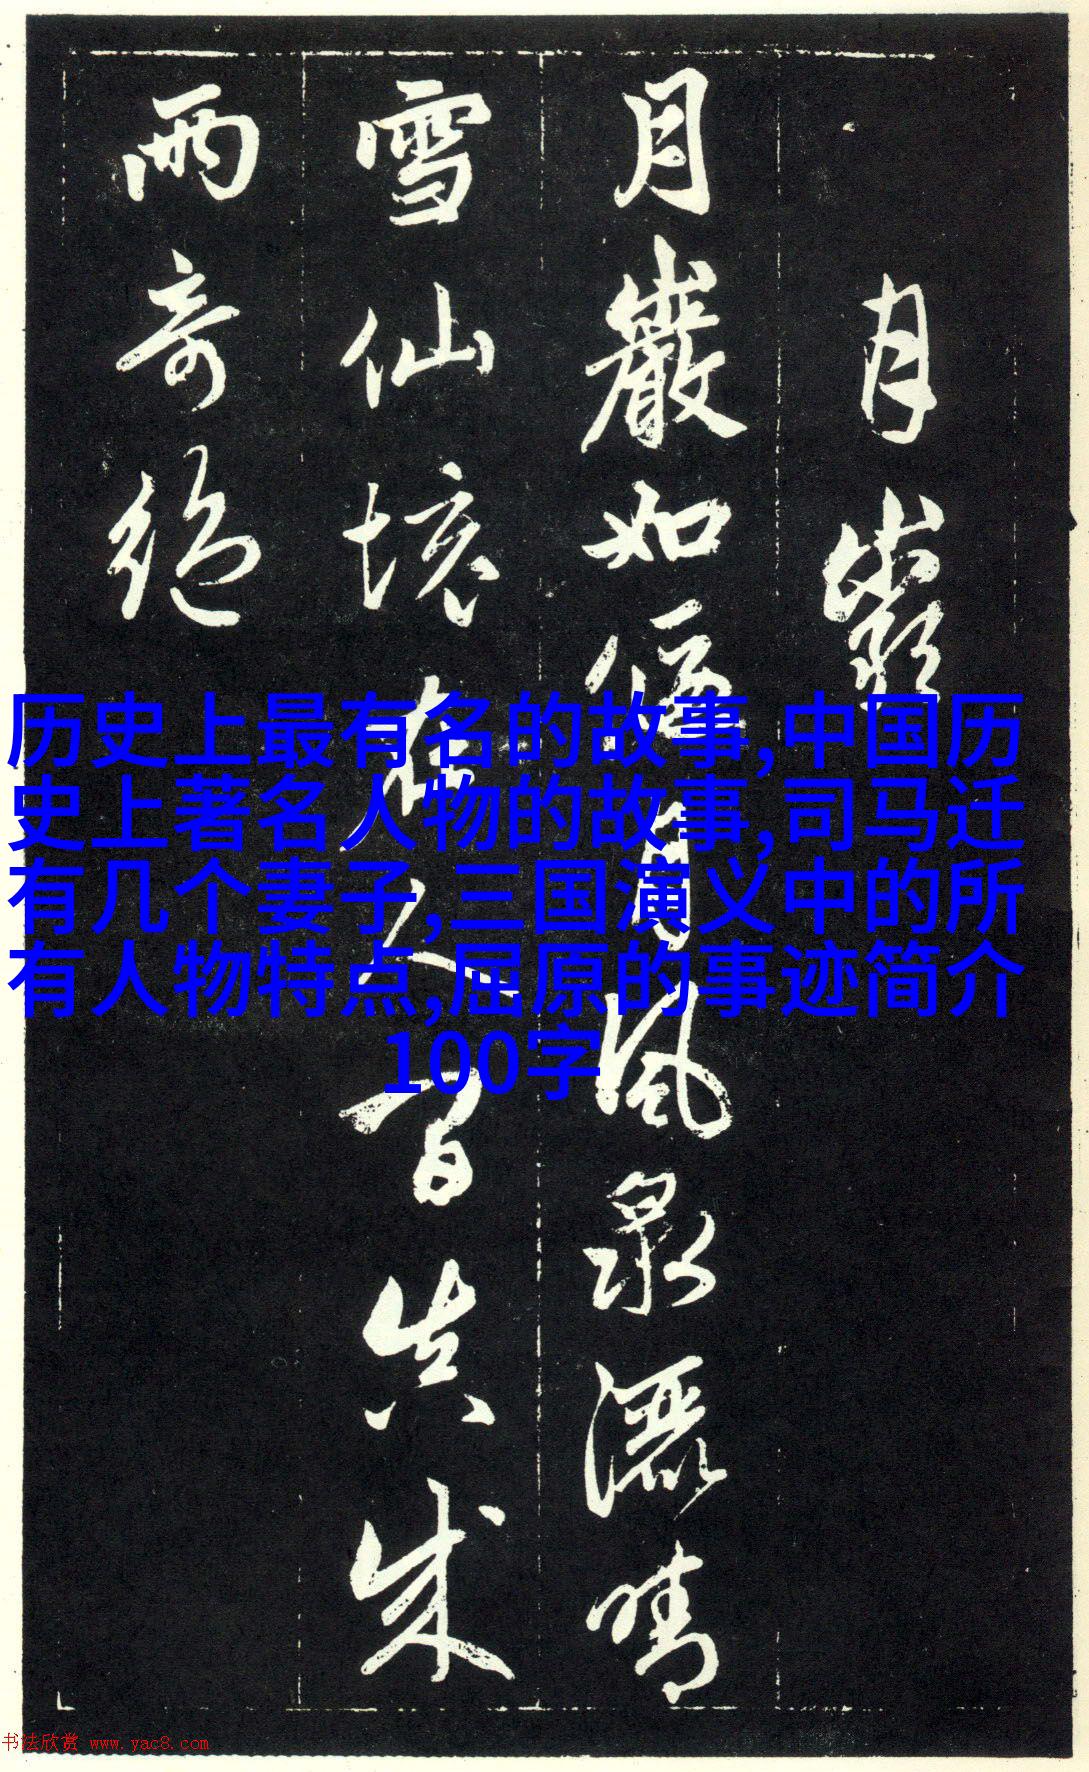 月巖
月巖如偃月風泉灑晴
雪仙境在人間真成
兩奇絕
历史上最有名的故事,中国历
史上著名人物的故事,司马迁
有几个妻子,三国演义中的所
有人物特点,屈原的事迹简介
100字
书法欣赏 www.yac8.com